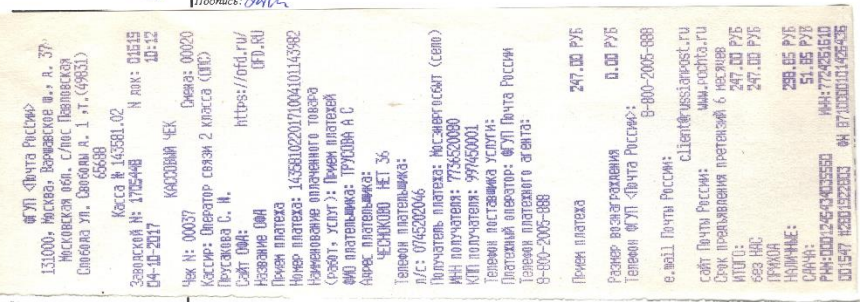 Подпись:
ФГУП «Почта России»
131000, Москва, Варшавское ш., д. 37
Московская обл. с/пос Павловская
Слобода ул. Свободы д. 1, т.(49831)
65688
Касса № 143581.02
Заводской N: 1705448 N док: 01619
04-10-2017 10:12
КАССОВЫЙ ЧЕК
Чек N: 00037 Смена: 00020
Кассир: Оператор связи 2 класса (ОПС)
Прусакова С. И.
Сайт ОФД: https://ofd.ru/
Название ОФД OFD.RU
Прием платежа
Номер платежа: 14358102201710041011143982
Наименование оплаченного товара
(работ, услуг): Прием платежей
ФИО плательщика: ТРУСОВА А С
Адрес плательщика:
ЧЕСНОКОВО НЕТ 36
Телефон плательщика:
л/с: 0745202046
Получатель платежа: Мосэнергосбыт (село)
ИНН получателя: 7736520080
КПП получателя: 997450001
Телефон поставщика услуги:
Платежный оператор: ФГУП Почта России
Телефон платежного агента:
8-800-2005-888
Прием платежа 247.00 РУБ
Размер вознаграждения 0.00 РУБ
Телефон ФГУП «Почта России»:
8-800-2005-888
e.mail Почты России:
client@russianpost.ru
сайт Почты России: www.pochta.ru
Срок предъявления претензий 6 месяцев
ИТОГО: 247.00 РУБ
без НДС 247.00 РУБ
ПРИХОД
НАЛИЧНЫЕ: 298.85 РУБ
СДАЧА: 51.85 РУБ
ИНН:7724261610